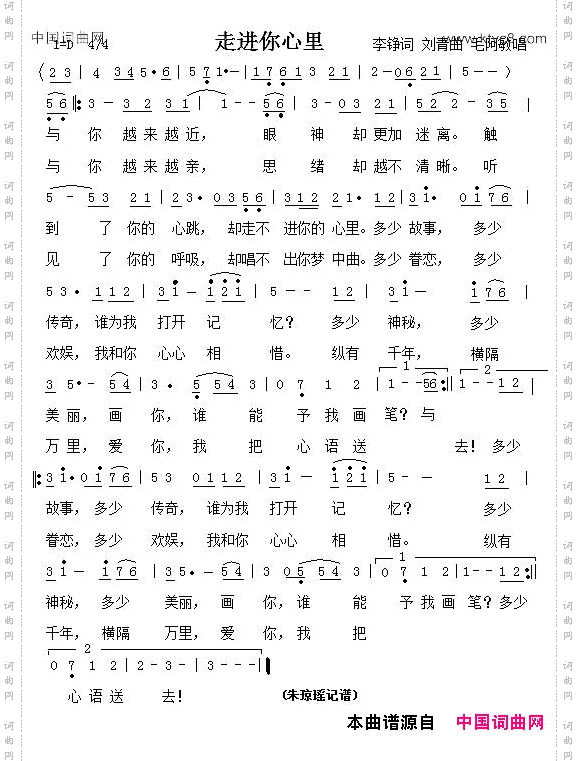 中国词曲网 走进你心里 www.ktvc8.com
1=D 4/4 李铮词 刘青曲 毛阿敏唱
(2 3 | 4 3 4 5· 6 | 5 7 1· - | 1 7 6 1 3 2 1 | 2 - 0 6 2 1 | 5 - - )
5 6 ‖: 3 - 3 2 3 1 | 1 - - 5 6 | 3 - 0 3 2 2 1 | 5 2 2 - 3 5 |
与 你 越来越近, 眼 神 却更加 迷离。 触
与 你 越来越亲, 思 绪 却越不 清晰。 听
5 - 5 3 2 1 | 2 3· 0 3 5 6 | 3 1 2 2 1· 1 2 | 3 1· 0 1 7 6 |
到 了你的 心跳, 却走不 进你的心里。多少 故事, 多少
见 了你的 呼吸, 却唱不 出你梦中曲。多少 眷恋, 多少
5 3· 1 1 2 | 3 1 - 1 2 1 | 5 - - 1 2 | 3 1 - 1 7 6 |
传奇, 谁为我 打开 记 忆? 多少 神秘, 多少
欢娱, 我和你 心心 相 惜。 纵有 千年, 横隔
1 2
3 5· - 5 4 | 3 · 5 5 4 | 3 0 7 1 2 | 1 - - 5 6 :‖ 1 - - 1 2 |
美丽, 画 你, 谁 能 予 我 画 笔? 与
万里, 爱 你, 我 把 心 语 送 去! 多少
‖: 3 1· 0 1 7 6 | 5 3 0 1 1 2 | 3 1 - 1 2 1 | 5 - - 1 2 |
故事, 多少 传奇, 谁为我 打开 记 忆? 多少
眷恋, 多少 欢娱, 我和你 心心 相 惜。 纵有
1
3 1 - 1 7 6 | 3 5· - 5 4 | 3 0 5 5 4 | 0 7 1 2 | 1 - - 1 2 :‖
神秘, 多少 美丽, 画 你, 谁 能 予 我 画 笔? 多少
千年, 横隔 万里, 爱 你, 我 把
2
0 7 1 2 | 1 - - 2 | 3 - - - | 3 - - - ‖
心 语 送 去! (朱琼瑶记谱)
本曲谱源自 中国词曲网